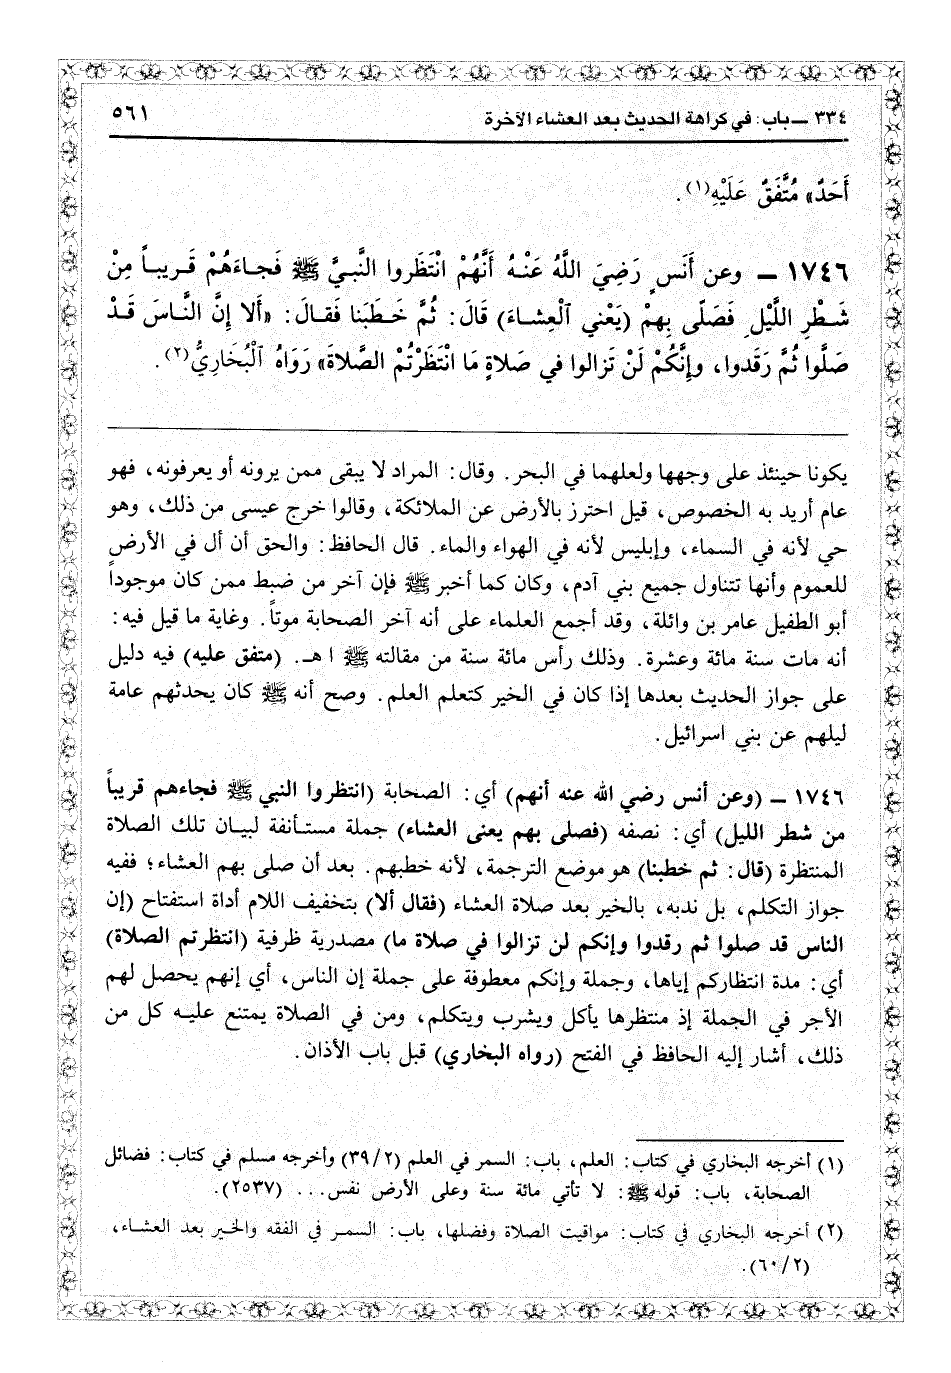 ٣٣٤ ــ باب: في كراهة الحديث بعد العشاء الآخرة
٥٦١
أَحَدٌ» مُتَّفَقٌ عَلَيْهِ(١).
١٧٤٦ ــ وعن أَنَسٍ رَضِيَ اللَّهُ عَنْهُ أَنَّهُمْ انْتَظَروا النَّبيَّ ﷺ فَجاءَهُمْ قَريباً مِنْ
شَطْرِ اللَّيْلِ فَصَلّى بِهِمْ (يَعْني ٱلْعِشاءَ) قَالَ: ثُمَّ خَطَبَنا فَقالَ: «أَلا إِنَّ النَّاسَ قَدْ
صَلَّوا ثُمَّ رَقَدوا، وإِنَّكُمْ لَنْ تَزالوا في صَلاةٍ مَا انْتَظَرْتُمْ الصَّلاةَ» رَوَاهُ ٱلْبُخَارِيُّ(٢).
يكونا حينئذ على وجهها ولعلهما في البحر. وقال: المراد لا يبقى ممن يرونه أو يعرفونه، فهو
عام أريد به الخصوص، قيل احترز بالأرض عن الملائكة، وقالوا خرج عيسى من ذلك، وهو
حي لأنه في السماء، وإبليس لأنه في الهواء والماء. قال الحافظ: والحق أن أل في الأرض
للعموم وأنها تتناول جميع بني آدم، وكان كما أخبر ﷺ فإن آخر من ضبط ممن كان موجوداً
أبو الطفيل عامر بن وائلة، وقد أجمع العلماء على أنه آخر الصحابة موتاً. وغاية ما قيل فيه:
أنه مات سنة مائة وعشرة. وذلك رأس مائة سنة من مقالته ﷺ ا هـ. (متفق عليه) فيه دليل
على جواز الحديث بعدها إذا كان في الخير كتعلم العلم. وصح أنه ﷺ كان يحدثهم عامة
ليلهم عن بني اسرائيل.
١٧٤٦ ــ (وعن أنس رضي الله عنه أنهم) أي: الصحابة (انتظروا النبي ﷺ فجاءهم قريباً
من شطر الليل) أي: نصفه (فصلى بهم يعنى العشاء) جملة مستأنفة لبيان تلك الصلاة
المنتظرة (قال: ثم خطبنا) هو موضع الترجمة، لأنه خطبهم. بعد أن صلى بهم العشاء؛ ففيه
جواز التكلم، بل ندبه، بالخير بعد صلاة العشاء (فقال ألا) بتخفيف اللام أداة استفتاح (إن
الناس قد صلوا ثم رقدوا وإنكم لن تزالوا في صلاة ما) مصدرية ظرفية (انتظرتم الصلاة)
أي: مدة انتظاركم إياها، وجملة وإنكم معطوفة على جملة إن الناس، أي إنهم يحصل لهم
الأجر في الجملة إذ منتظرها يأكل ويشرب ويتكلم، ومن في الصلاة يمتنع عليه كل من
ذلك، أشار إليه الحافظ في الفتح (رواه البخاري) قبل باب الأذان.
(١) أخرجه البخاري في كتاب: العلم، باب: السمر في العلم (٣٩/٢) وأخرجه مسلم في كتاب: فضائل
الصحابة، باب: قوله ﷺ: لا تأتي مائة سنة وعلى الأرض نفس... (٢٥٣٧).
(٢) أخرجه البخاري في كتاب: مواقيت الصلاة وفضلها، باب: السمر في الفقه والخير بعد العشاء،
(٦٠/٢).